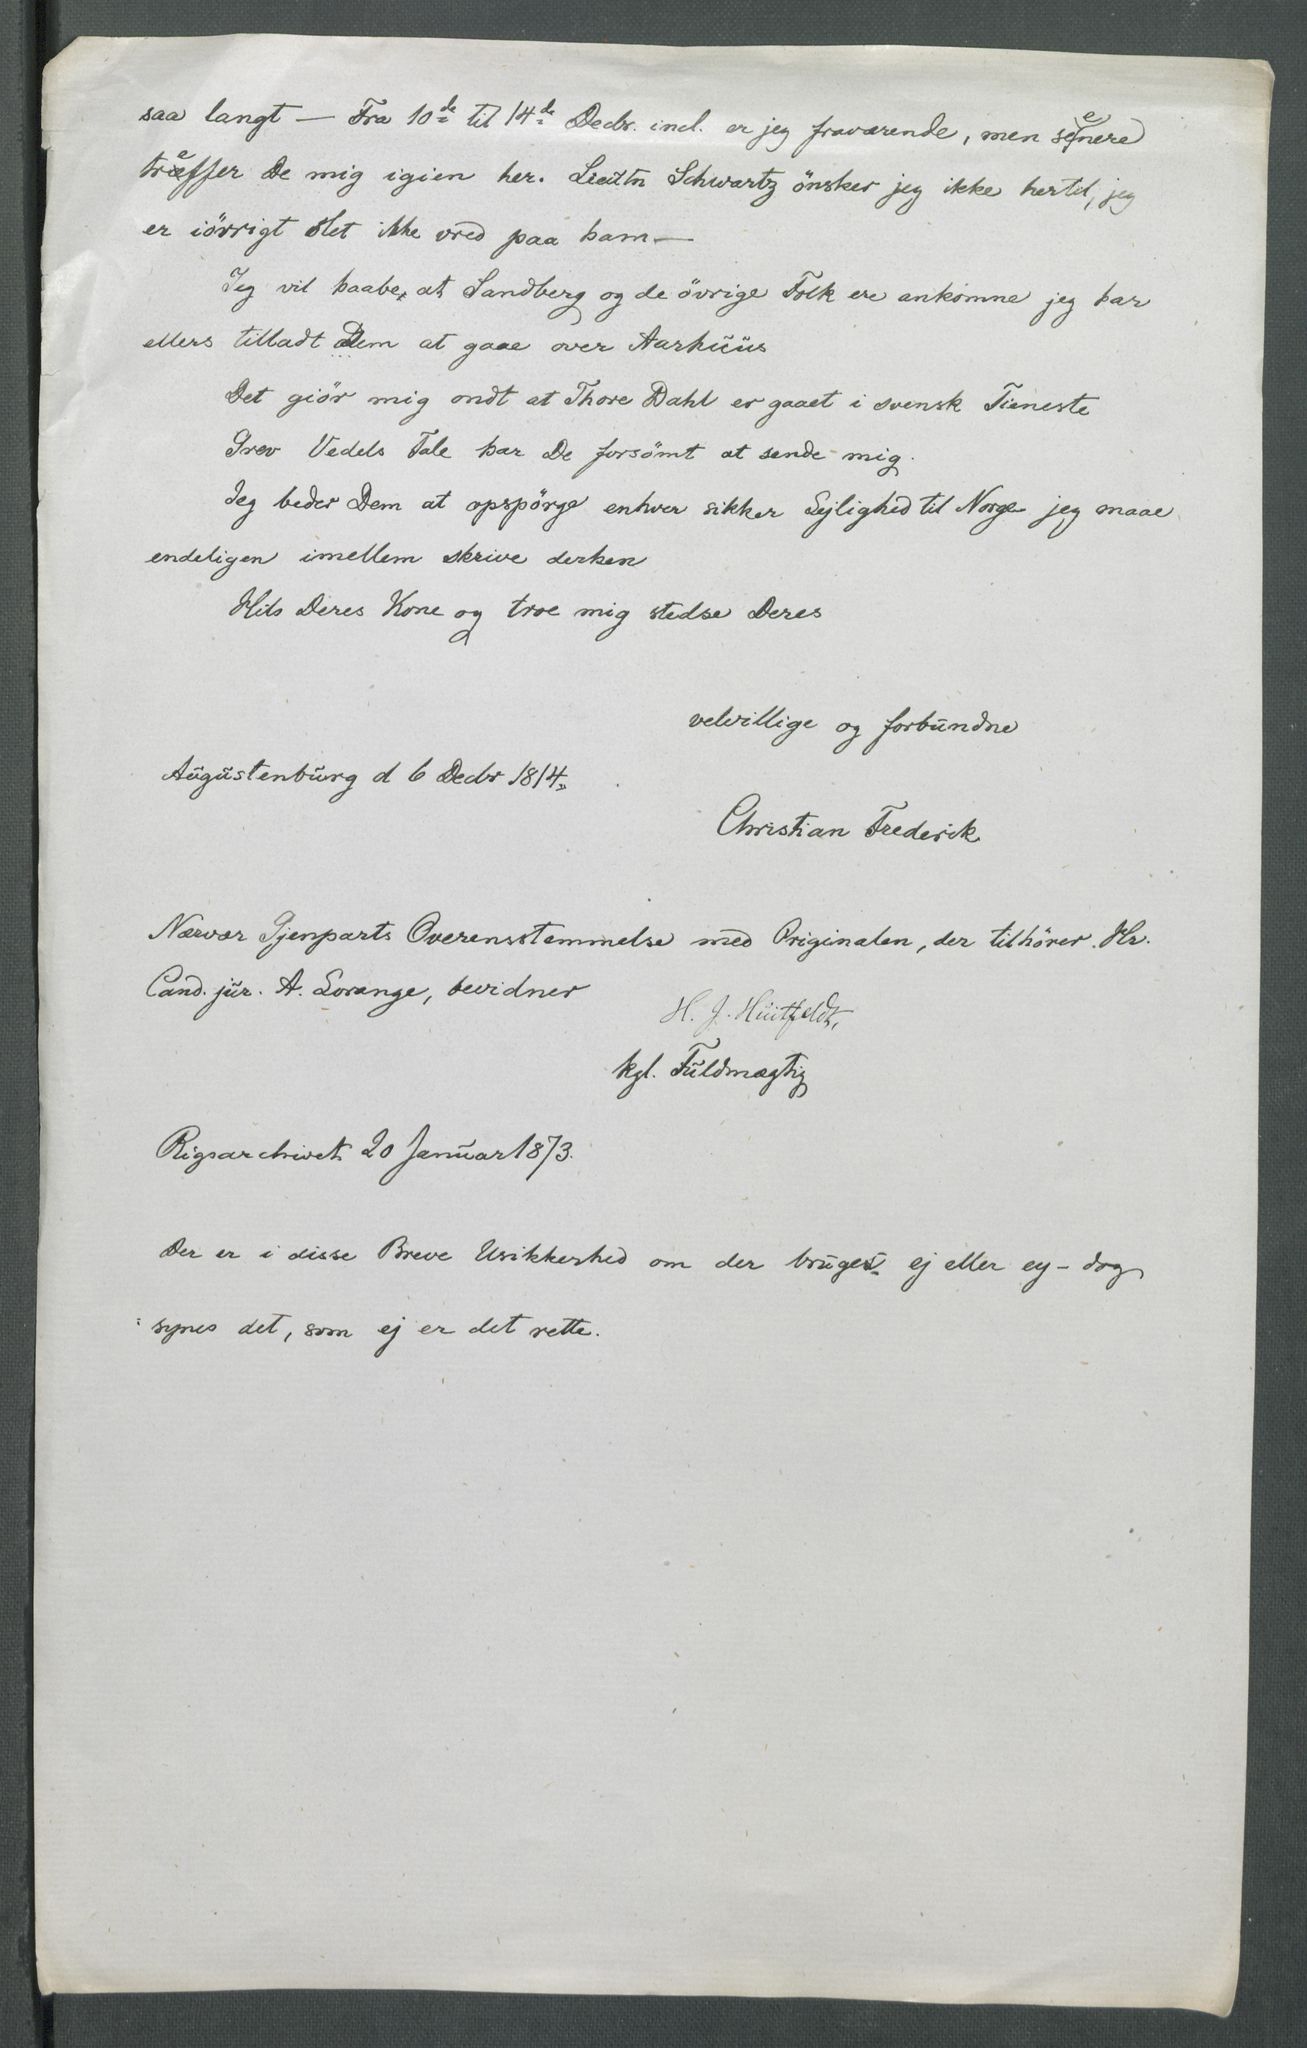 saa langt — Fra 10de til 14de Decbr. incl. er jeg fraværende, men senere
træffer De mig igien her. Lieutn Schwartz önsker jeg ikke hertil, jeg
er iövrigt slet ikke vred paa ham —
Jeg vil haabe, at Sandberg og de övrige Folk ere ankomne jeg har
ellers tilladt Dem at gaae over Aarhuus
Det giör mig ondt at Thore Dahl er gaaet i svensk Tieneste
Grev Vedels Tale har De forsömt at sende mig.
Jeg beder Dem at opspörge enhver sikker Lejlighed til Norge jeg maae
endeligen imellem skrive derhen
Hils Deres Kone og troe mig stedse Deres
velvillige og forbundne
Augustenburg d 6 Decbr 1814.
Christian Frederik
Nærvær Gjenparts Overensstemmelse med Originalen, der tilhörer Hr.
Cand. jur. A. Lorange, bevidner
H. J. Huitfeldt,
kgl. Fuldmægtig
Rigsarchivet 20 Januar 1873.
Der er i disse Breve Usikkerhed om der bruges ej eller ey - dog
synes det, som ej er det rette.